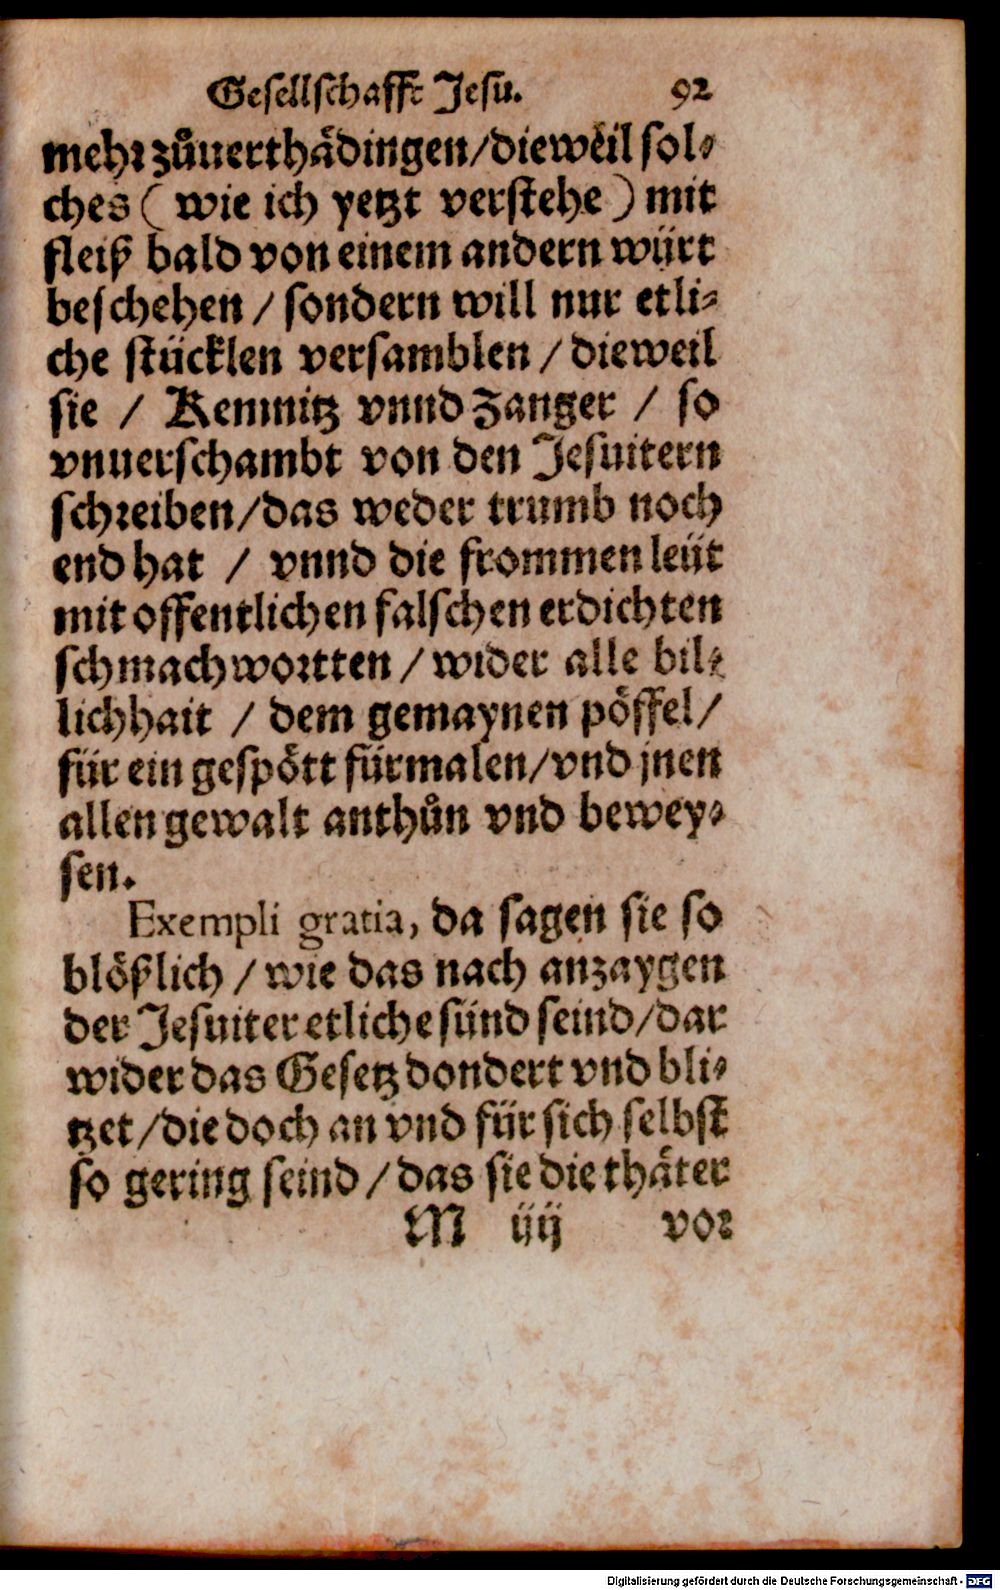 Gesellschafft Jesu. 92
mehr zůuerthädingen/dieweil sol-
ches ( wie ich yetzt verstehe ) mit
fleiß bald von einem andern würt
beschehen / sondern will nur etli-
che stücklen versamblen / dieweil
sie / Kemnitz vnnd Zanger / so
vnuerschambt von den Jesuitern
schreiben/das weder trumb noch
end hat / vnnd die frommen leüt
mit offentlichen falschen erdichten
schmachwortten / wider alle bil-
lichhait / dem gemaynen pöffel/
für ein gespött fürmalen/vnd jnen
allen gewalt anthůn vnd bewey-
sen.
Exempli gratia, da sagen sie so
blößlich / wie das nach anzaygen
der Jesuiter etliche sünd seind/dar
wider das Gesetz dondert vnd bli-
tzet/die doch an vnd für sich selbst
so gering seind / das sie die thäter
M iiij vor
Digitalisierung gefördert durch die Deutsche Forschungsgemeinschaft - DFG